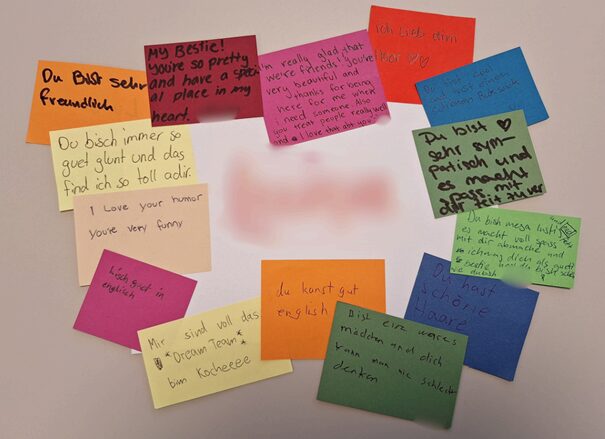 Du Bist sehr
freundlich
My Bestie!
you're so pretty
and have a speci
al place in my
heart.
I'm really glad that
we're friends! you're
very beautiful and
thanks for being
here for me when
I need someone. Also
you treat people really well
and I love that abt you
ich lieb dini
♡♡
Du bist cool
und hast einen
Du bist ♡
sehr sym-
patisch und
es macht
spass, mit
dir zeit zu ver
Du bisch immer so
guet glunt und das
find ich so toll a dir.
I Love your humor
you're very funny
Du bish mega lusti
es macht voll spass
mit dir abmache und
Lisch guet in
english
du kanst gut
english
Du hast
schöne
Haare
Mir sind voll das
*Dream Team*
bim Kocheeee
Bist eine
mädchen und dich
kann man nie schlecht
denken